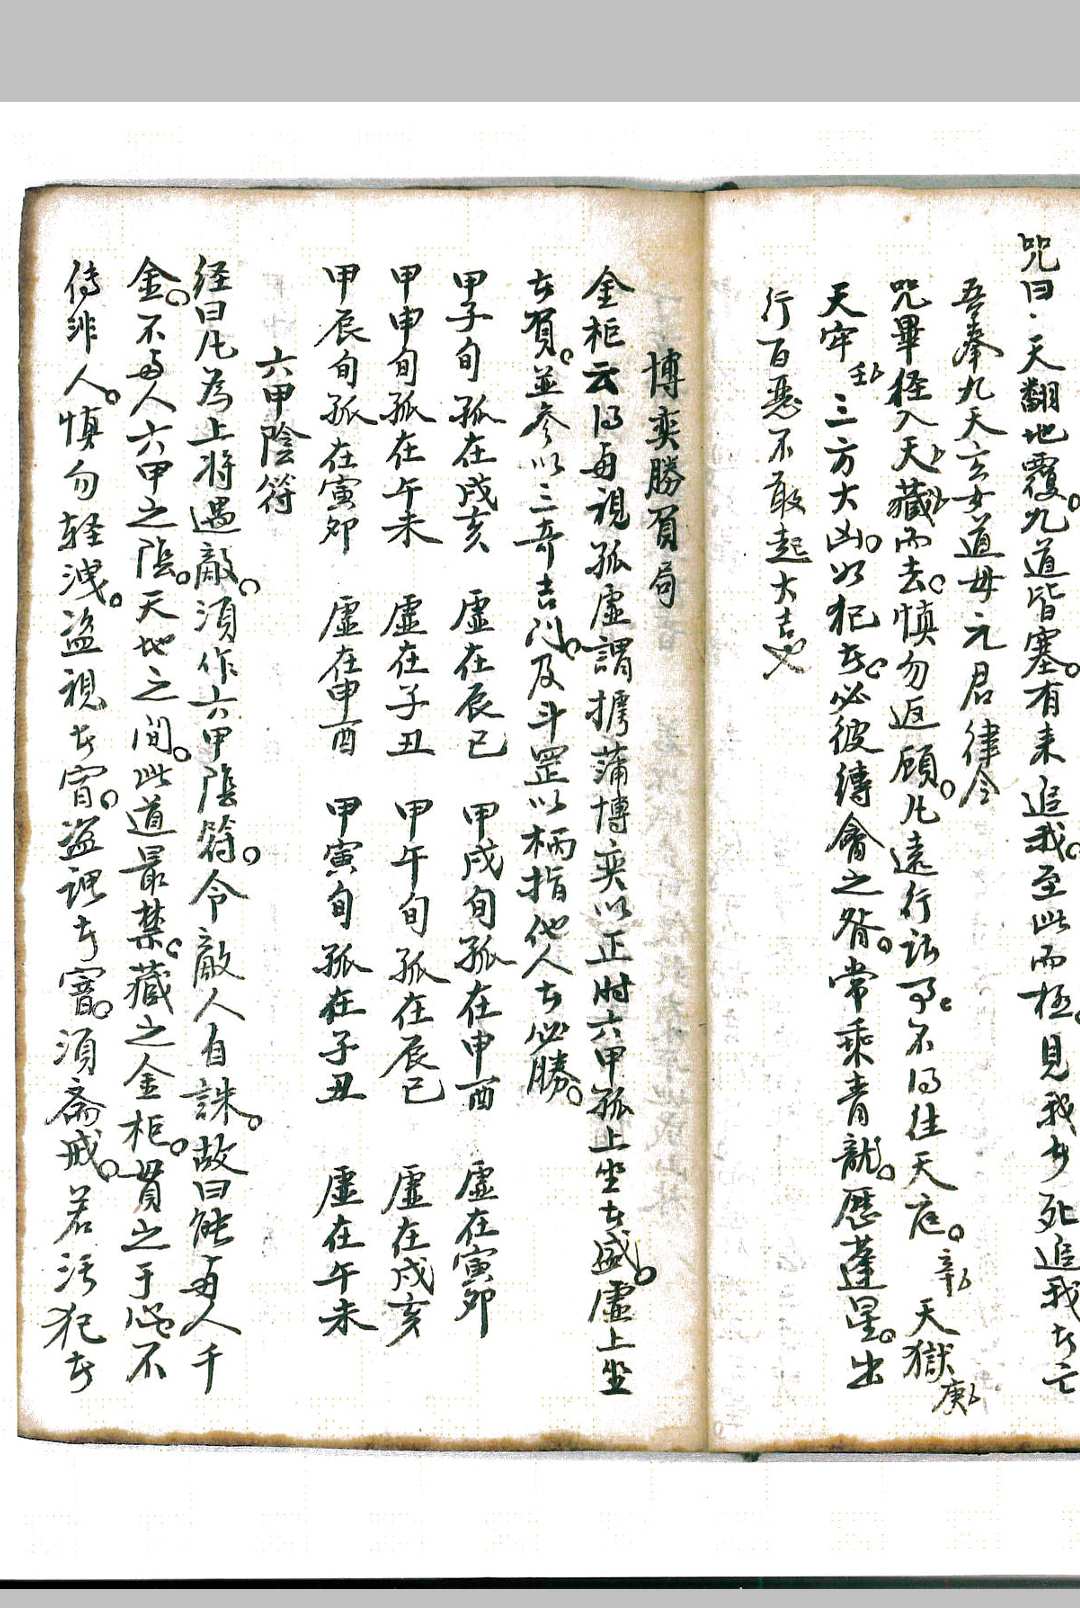 咒曰天翻地覆九道皆塞有来追我至此而極見我者死追我者亡
吾奉九天玄女道母元君律令
咒畢徑入天藏而去慎勿返顧凡遠行諸事不得往天庭辛天獄庚
天牢壬三方大凶以犯者必彼縛會之咎常乘青龍歷蓬星出
行百惡不敢起大吉也
博奕勝負局
金柜云得每視孤虛謂摴蒲博奕以正时六甲孤上坐者盛虛上坐
者負並參以三奇吉门及斗罡以柄指他人者必勝
甲子旬孤在戌亥 虛在辰巳 甲戌旬孤在申酉 虛在寅卯
甲申旬孤在午未 虛在子丑 甲午旬孤在辰巳 虛在戌亥
甲辰旬孤在寅卯 虛在申酉 甲寅旬孤在子丑 虛在午未
六甲陰符
经曰凡為上将遇敵須作六甲陰符令敵人自誅故曰能與人千
金不與人六甲之陰天地之间此道最禁藏之金柜貫之于心不
傳非人慎勿轻洩盗視者窅盗課者窨須斋戒若污犯者